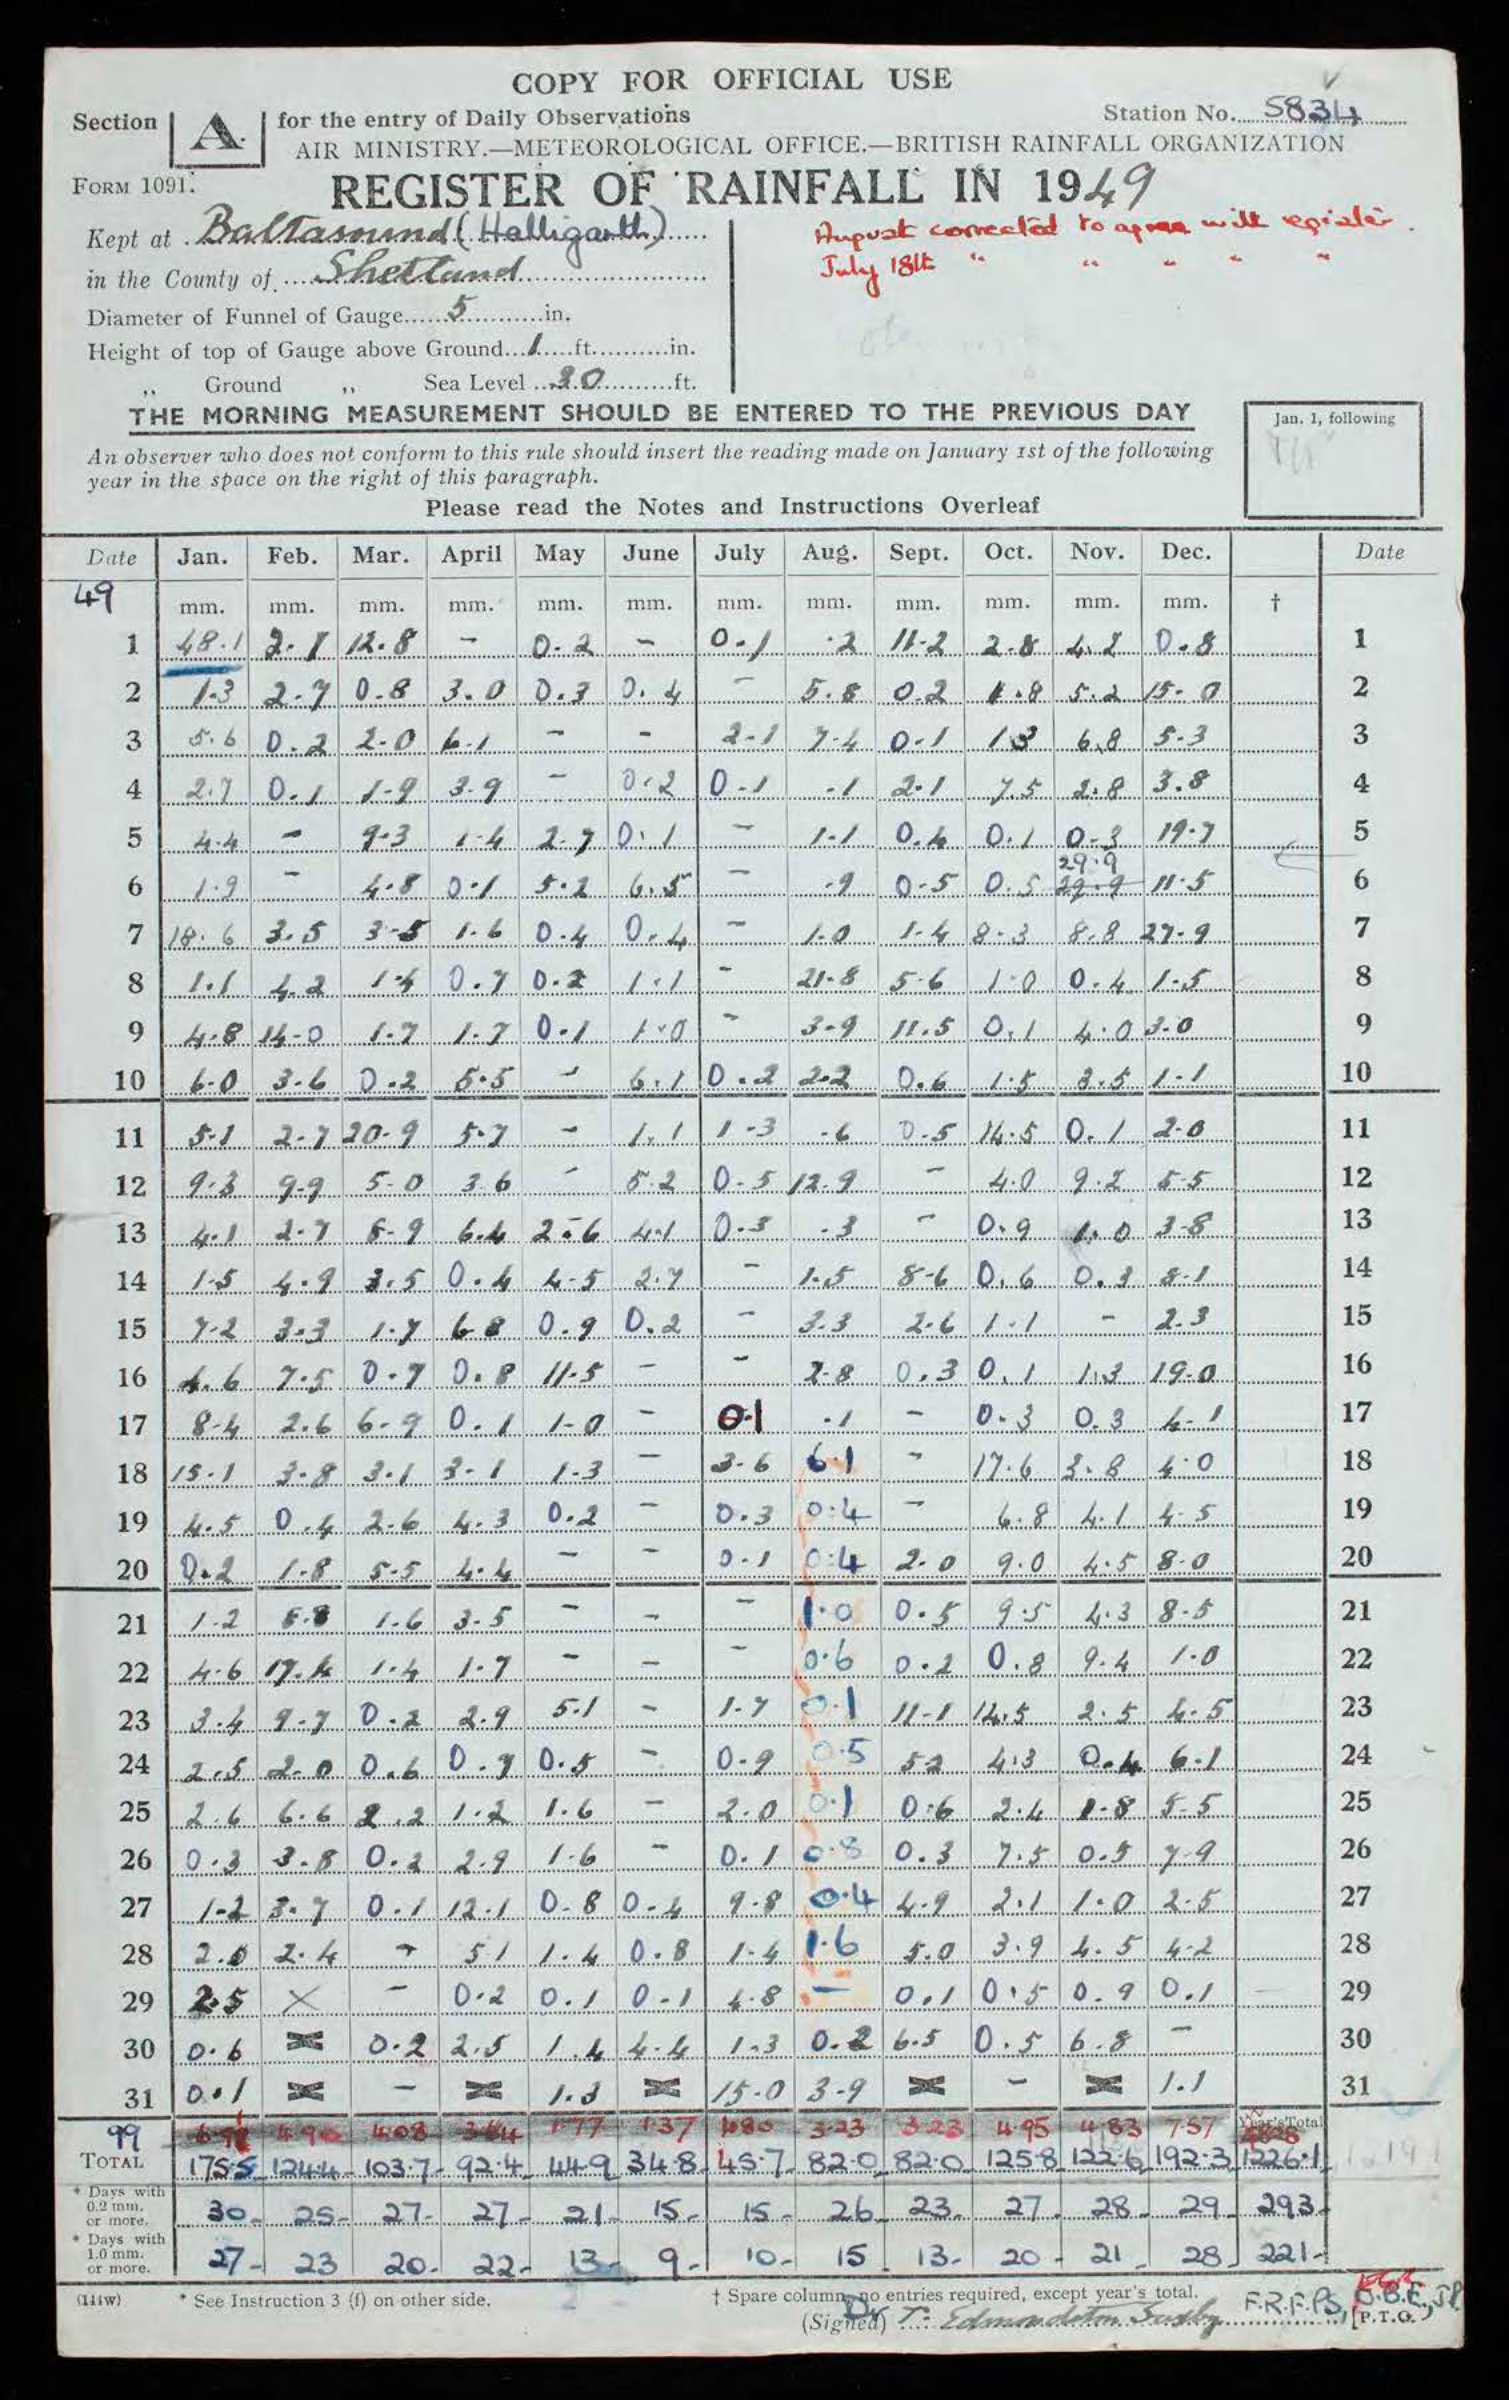 COPY FOR OFFICIAL USE
Section A. for the entry of Daily Observations Station No. 5834
AIR MINISTRY.—METEOROLOGICAL OFFICE.—BRITISH RAINFALL ORGANIZATION
FORM 1091. REGISTER OF RAINFALL IN 1949
Kept at Baltasound (Halligarth)
in the County of Shetland
Diameter of Funnel of Gauge 5 in.
Height of top of Gauge above Ground 1 ft. in.
,, Ground ,, Sea Level ft.
August corrected to agree with register.
July 18th " " " " "
THE MORNING MEASUREMENT SHOULD BE ENTERED TO THE PREVIOUS DAY
An observer who does not conform to this rule should insert the reading made on January 1st of the following
year in the space on the right of this paragraph.
Jan. 1, following
Please read the Notes and Instructions Overleaf
Date Jan. Feb. Mar. April May June July Aug. Sept. Oct. Nov. Dec. Date
49 mm. mm. mm. mm. mm. mm. mm. mm. mm. mm. mm. mm. †
1 48.1 2.1 12.8 - 0.2 - 0.1 .2 11.2 2.8 4.2 0.8 1
2 1.3 2.7 0.8 3.0 0.3 0.4 - 5.8 0.2 1.8 5.2 15.0 2
3 5.6 0.2 2.0 6.1 - - 2.1 7.4 0.1 13 6.8 5.3 3
4 2.7 0.1 1.9 3.9 - 0.2 0.1 .1 2.1 7.5 2.8 3.8 4
5 4.4 - 9.3 1.4 2.7 0.1 - 1.1 0.4 0.1 0.3 19.7 5
29.9
6 1.9 - 4.8 0.1 5.2 6.5 - .9 0.5 0.5 29.9 11.5 6
7 18.6 3.5 3.5 1.6 0.4 0.4 - 1.0 1.4 8.3 8.8 27.9 7
8 1.1 4.2 1.4 0.7 0.2 1.1 - 21.8 5.6 1.0 0.4 1.5 8
9 4.8 14.0 1.7 1.7 0.1 1.0 - 3.9 11.5 0.1 4.0 3.0 9
10 6.0 3.6 0.2 5.5 - 6.1 0.2 2.2 0.6 1.5 3.5 1.1 10
11 5.1 2.7 20.9 5.7 - 1.1 1.3 .6 0.5 14.5 0.1 2.0 11
12 9.3 9.9 5.0 3 6 - 5.2 0.5 12.9 - 4.0 9.2 5.5 12
13 4.1 2.7 5.9 6.4 2.6 4.1 0.3 .3 - 0.9 1.0 3.8 13
14 1.5 4.9 3.5 0.4 4.5 2.7 - 1.5 8.6 0.6 0.3 8.1 14
15 7.2 3.3 1.7 6 8 0.9 0.2 - 3.3 2.6 1.1 - 2.3 15
16 4.6 7.5 0.7 0.8 11.5 - - 2.8 0.3 0.1 1.3 19.0 16
17 8.4 2.6 6.9 0.1 1.0 - 0.1 .1 - 0.3 0.3 4.1 17
18 15.1 3.8 3.1 3.1 1.3 - 3.6 6.1 - 17.6 3.8 4.0 18
19 4.5 0.4 2.6 4.3 0.2 - 0.3 0.4 - 6.8 4.1 4.5 19
20 0.2 1.8 5.5 4.4 - - 0.1 0.4 2.0 9.0 4.5 8.0 20
21 1.2 5.8 1.6 3.5 - - - 1.0 0.5 9.5 4.3 8.5 21
22 4.6 17.4 1.4 1.7 - - - 0.6 0.2 0.8 9.4 1.0 22
23 3.4 9.7 0.2 2.9 5.1 - 1.7 0.1 11.1 14.5 2.5 4.5 23
24 2.5 2.0 0.6 0.7 0.5 - 0.9 0.5 5 2 4.3 0.4 6.1 24
25 2.6 6.6 2.2 1.2 1.6 - 2.0 0.1 0.6 2.4 1.8 5.5 25
26 0.3 3.8 0.2 2.9 1.6 - 0.1 0.8 0.3 7.5 0.5 7.9 26
27 1.2 3.7 0.1 12.1 0.8 0.4 9.8 0.4 4.9 2.1 1.0 2.5 27
28 2.0 2.4 - 5 1 1.4 0.8 1.4 1.6 5.0 3.9 4.5 4.2 28
29 2.5 X - 0.2 0.1 0.1 4.8 - 0.1 0.5 0.9 0.1 29
30 0.6 X 0.2 2.5 1.4 4.4 1.3 0.2 6.5 0.5 6.8 - 30
31 0.1 X - X 1.3 X 15.0 3.9 X - X 1.1 31
99 4.90 4.08 3.64 1.77 1.37 1.80 3.23 3.23 4.95 4.83 7.57 Year's Total
TOTAL 175.5 124.4 103.7 92.4 44.9 34.8 45.7 82.0 82.0 125.8 122.6 192.3 1226.1
* Days with 0.2 mm. or more. 30 25 27 27 21 15 15 26 23 27 28 29 293
* Days with 1.0 mm. or more. 27 23 20 22 13 9 10 15 13 20 21 28 221
(111w) * See Instruction 3 (f) on other side. † Spare column, no entries required, except year's total.
(Signed) Dr T. Edmondston Saxby F.R.F.P.S, O.B.E., J.P. [P.T.O.